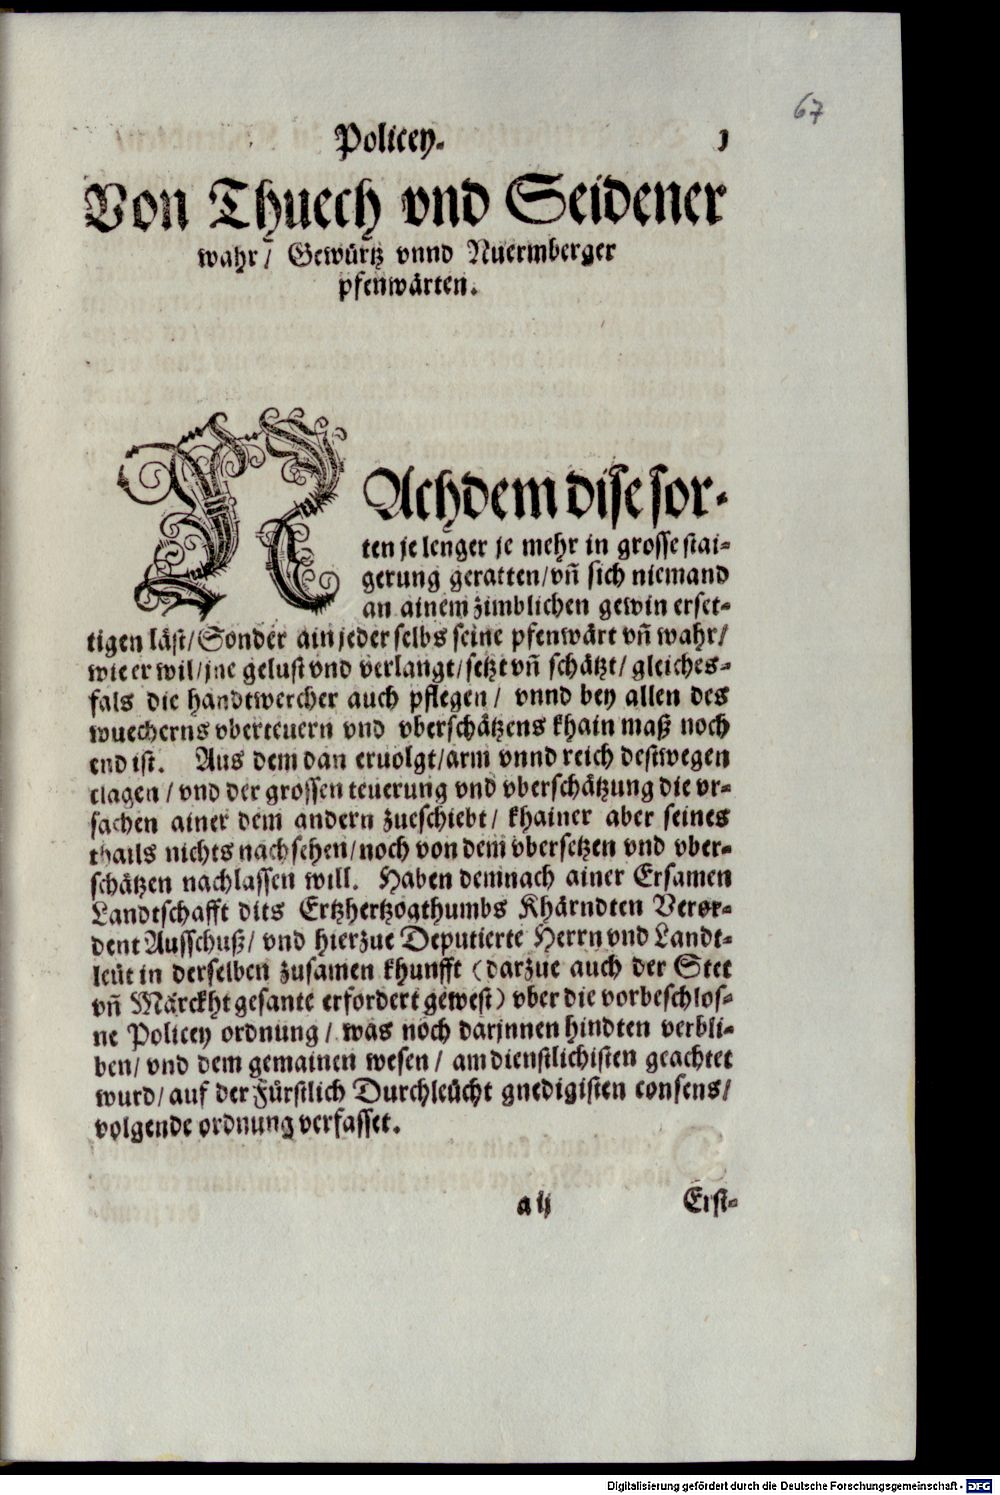 67
Policey. 1
Von Thuech vnd Seidener
wahr/ Gewürtz vnnd Nuermberger
pfenwärten.
NAchdem dise sor-
ten je lenger je mehr in grosse stai-
gerung geratten/vn̄ sich niemand
an ainem zimblichen gewin erset-
tigen läst/Sonder ain jeder selbs seine pfenwärt vn̄ wahr/
wie er wil/jne gelust vnd verlangt/setzt vn̄ schätzt/gleiches-
fals die handtwercher auch pflegen/ vnnd bey allen des
wuecherns vberteuern vnd vberschätzens khain maß noch
end ist. Aus dem dan eruolgt/arm vnnd reich destwegen
clagen/vnd der grossen teuerung vnd vberschätzung die vr-
sachen ainer dem andern zueschiebt/ khainer aber seines
thails nichts nachsehen/noch von dem vbersetzen vnd vber-
schätzen nachlassen will. Haben demnach ainer Ersamen
Landtschafft dits Ertzhertzogthumbs Khärndten Veror-
dent Ausschuß/ vnd hierzue Deputierte Herrn vnd Landt-
leüt in derselben zusamen khunfft (darzue auch der Stet
vn̄ Märckht gesante erfordert gewest) vber die vorbeschlos-
ne Policey ordnung/ was noch darjnnen hindten verbli-
ben/vnd dem gemainen wesen/ am dienstlichisten geachtet
wurd/auf der Fürstlich Durchleücht gnedigisten consens/
volgende ordnung verfasset.
a ij Erst-
Digitalisierung gefördert durch die Deutsche Forschungsgemeinschaft - DFG